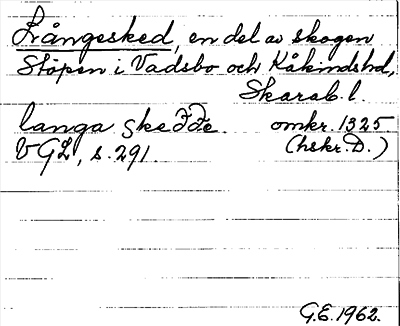 Långesked, en del av skogen
Stöpen i Vadsbo och Kåkindshd,
Skarab. l.
langa skeðđe. omkr. 1325
VGL, s. 291. (hskr. D.)
G.E. 1962.